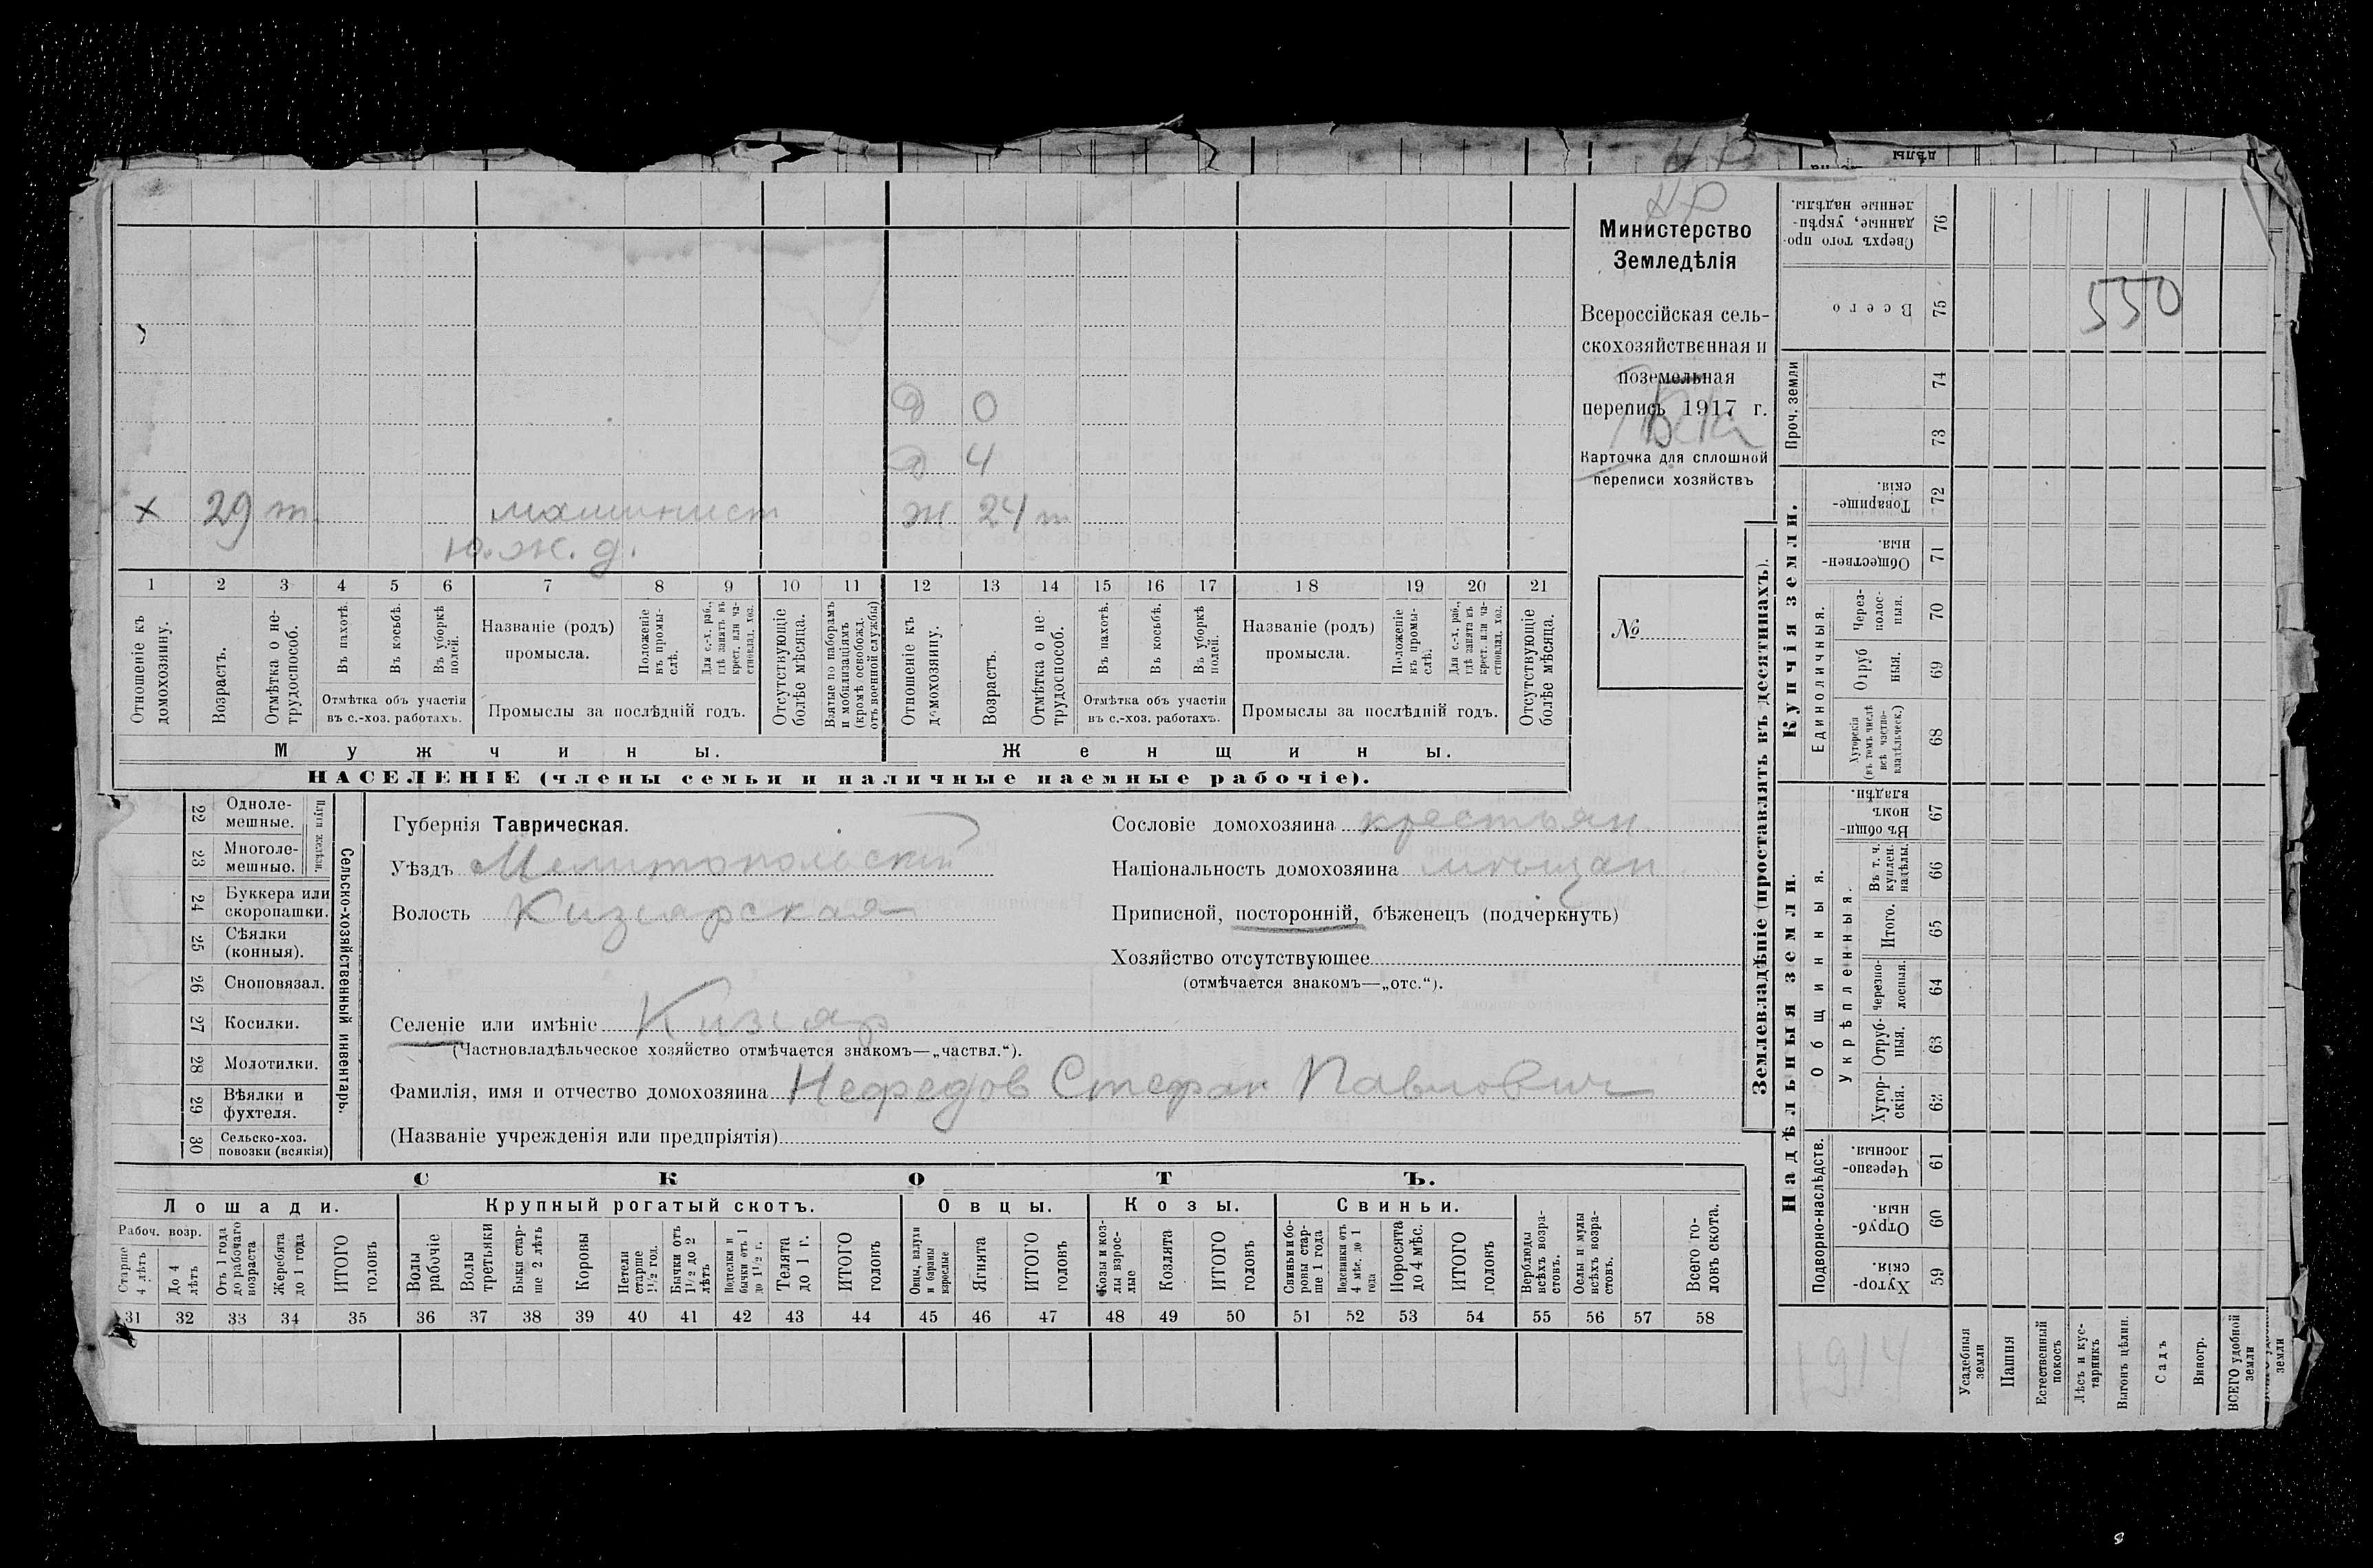 Министерство
Земледѣлія
Всероссійская сель-
скохозяйственная и
поземельная
перепись 1917 г.
Карточка для сплошной
переписи хозяйствъ
№
Д 0
Д 4
х 29 т машинист Ж 24 т
ю. ж. д.
1 2 3 4 5 6 7 8 9 10 11 12 13 14 15 16 17 18 19 20 21
Отношеніе къ домохозяину.
Возрастъ.
Отмѣтка о не-трудоспособ.
Въ пахотѣ.
Въ косьбѣ.
Въ уборкѣ полей.
Отмѣтка объ участіи
въ с.-хоз. работахъ.
Названіе (родъ)
промысла.
Положеніе въ промы-слѣ.
Для с.-х. раб., гдѣ занятъ въ крест. или ча-стновлад. хоз.
Промыслы за послѣдній годъ.
Отсутствующіе болѣе мѣсяца.
Взятые по наборамъ и мобилизаціямъ (кромѣ освобожд. отъ военной службы)
Отношеніе къ домохозяину.
Возрастъ.
Отмѣтка о не-трудоспособ.
Въ пахотѣ.
Въ косьбѣ.
Въ уборкѣ полей.
Отмѣтка объ участіи
въ с.-хоз. работахъ.
Названіе (родъ)
промысла.
Положеніе въ промы-слѣ.
Для с.-х. раб., гдѣ занята въ крест. или ча-стновлад. хоз.
Промыслы за послѣдній годъ.
Отсутствующіе болѣе мѣсяца.
Мужчины. Женщины.
НАСЕЛЕНІЕ (члены семьи и наличные наемные рабочіе).
Сельско-хозяйственный инвентарь.
Плуги желѣзн.
22 Одноле-мешные.
23 Многоле-мешные.
24 Буккера или скоропашки.
25 Сѣялки (конныя).
26 Сноповязал.
27 Косилки.
28 Молотилки.
29 Вѣялки и фухтеля.
30 Сельско-хоз. повозки (всякія)
Губернія Таврическая.
Уѣздъ Мелитопольский
Волость Кизиярская
Селеніе или имѣніе Кизияр
(Частновладѣльческое хозяйство отмѣчается знакомъ—„частвл.“).
Фамилія, имя и отчество домохозяина Нефедов Стефан Павлович
(Названіе учрежденія или предпріятія)
Сословіе домохозяина крестьян.
Національность домохозяина мѣщан
Приписной, посторонній, бѣженецъ (подчеркнуть)
Хозяйство отсутствующее
(отмѣчается знакомъ—„отс.“).
СКОТЪ.
Лошади. Крупный рогатый скотъ. Овцы. Козы. Свиньи.
Рабоч. возр.
Старше 4 лѣтъ
До 4 лѣтъ
Отъ 1 года до рабочаго возраста
Жеребята до 1 года
ИТОГО головъ
Волы рабочіе
Волы третьяки
Быки стар-ше 2 лѣтъ
Коровы
Нетели старше 1½ год.
Бычки отъ 1½ до 2 лѣтъ
Подтелки и бычки отъ 1 до 1½ г.
Телята до 1 г.
ИТОГО головъ
Овцы, валухи и бараны взрослые
Ягнята
ИТОГО головъ
Козы и коз-лы взрос-лые
Козлята
ИТОГО головъ
Свиньи и бо-ровы стар-ше 1 года
Подсвинки отъ 4 мѣс. до 1 года
Поросята до 4 мѣс.
ИТОГО головъ
Верблюды всѣхъ возра-стовъ.
Ослы и мулы всѣхъ возра-стовъ.
Всего го-ловъ скота.
31 32 33 34 35 36 37 38 39 40 41 42 43 44 45 46 47 48 49 50 51 52 53 54 55 56 57 58
Землевладѣніе (проставлять въ десятинахъ).
Надѣльныя земли.
Купчія земли.
Проч. земли
Подворно-наслѣдств.
Общинныя.
Укрѣпленныя.
Единоличныя.
Сверхъ того про-данные, укрѣп-ленные надѣлы. 76
Всего 75
74
73
Товарище-скія. 72
Обществен-ныя. 71
Через-полос-ныя. 70
Отруб-ныя. 69
Хуторскія (въ томъ числѣ всѣ частно-владѣльческ.) 68
Въ общин-номъ владѣн. 67
Въ т. ч. куплен. надѣлы. 66
Итого. 65
Черезпо-лосныя. 64
Отруб-ныя. 63
Хутор-скія. 62
Черезпо-лосныя. 61
Отруб-ныя. 60
Хутор-скія. 59
550
1914
Усадебныя земли
Пашня
Естественный покосъ
Лѣсъ и кус-тарникъ
Выгонъ цѣлин.
Садъ
Виногр.
ВСЕГО удобной земли